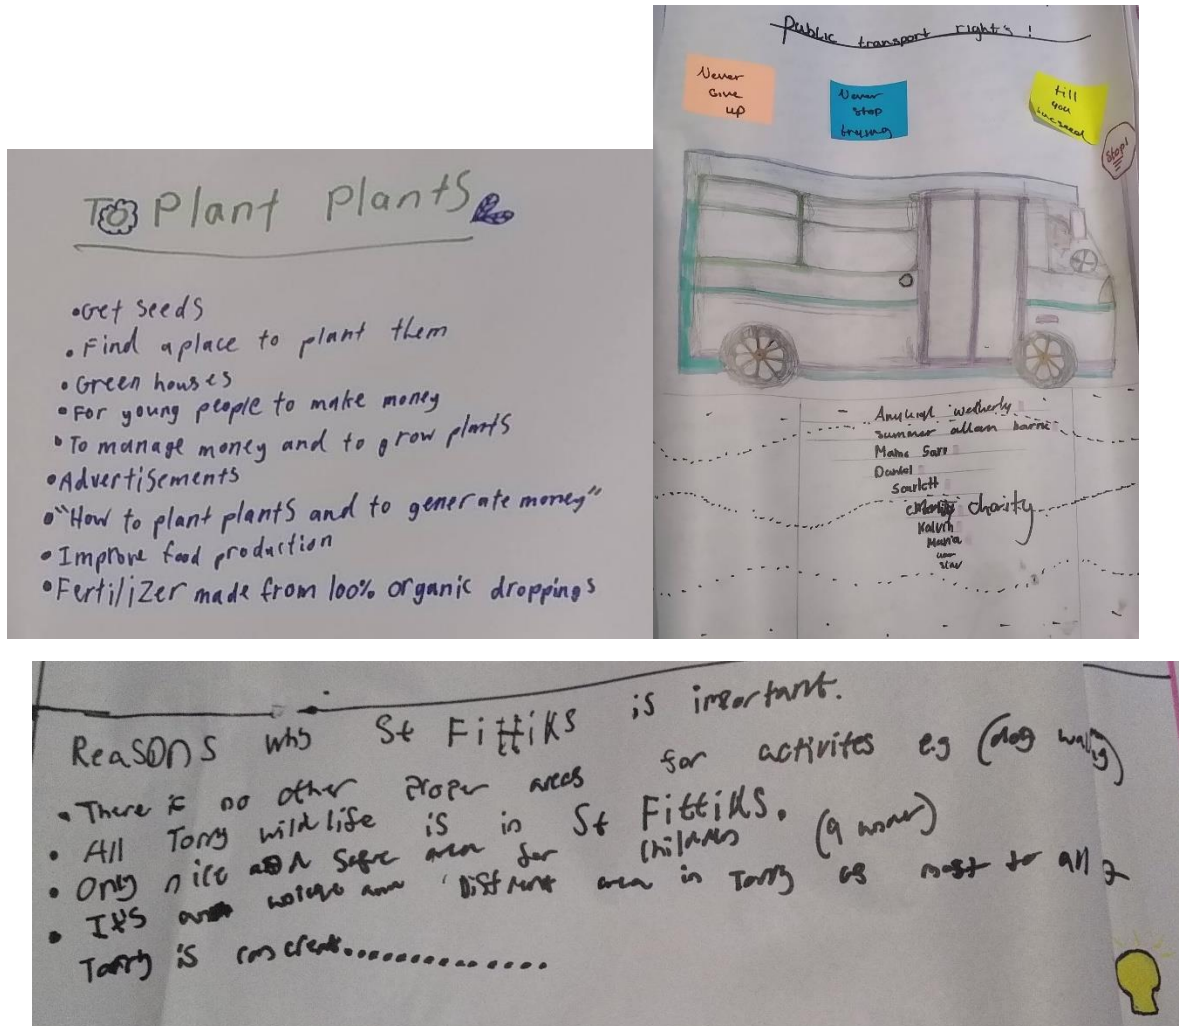 To Plant Plants
•Get seeds
•Find a place to plant them
•Green houses
•For young people to make money
•To manage money and to grow plants
•Advertisements
•"How to plant plants and to generate money"
•Improve food production
•Fertilizer made from 100% organic droppings
Public transport rights!
Never
Give
up
Never
stop
till
you
Stop!
wetherly
summer allan
Daniel
Scarlett
charity
Kalvin
Maria
Reasons why St Fittiks is important.
• There is no other proper areas for activites e.g (dog walking)
• All Torry wildlife is in St Fittiks.
• Only nice safe area for
• It's area in Torry as most to all
Torry is